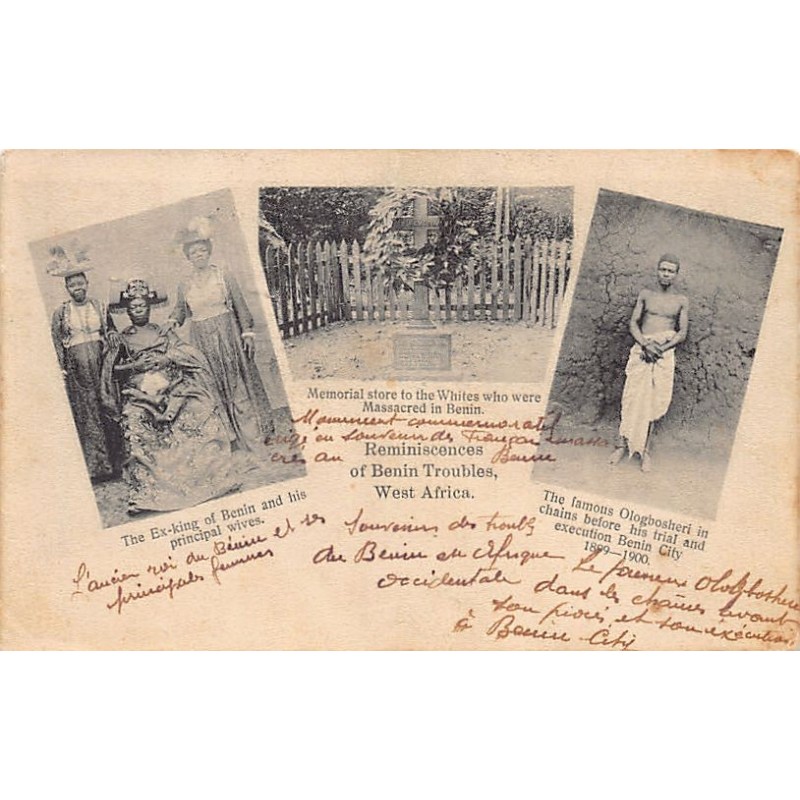 The Ex-king of Benin and his
principal wives.
L'ancien roi du Bénin et ses
principales femmes
Memorial store to the Whites who were
Massacred in Benin.
Monument commemoratif
érigé en souvenir des Français massa
crés au Benin
Reminiscences
of Benin Troubles,
West Africa.
Souvenirs des troubles
du Benin en Afrique
occidentale
The famous Ologbosheri in
chains before his trial and
execution Benin City
1899—1900.
Le fameux Ologbosheri
dans les chaînes avant
son procès et son exécution
à Benin City